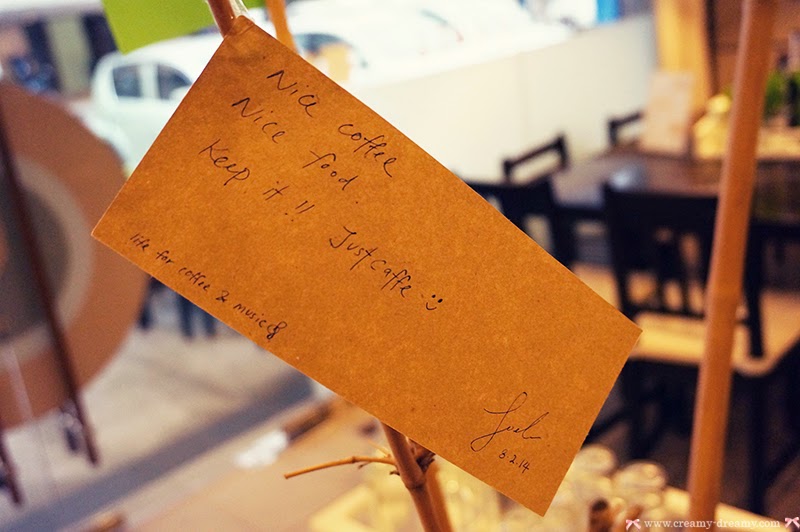 Nice coffee
Nice food.
Keep it!! Justcaffe :)
life for coffee & music
Joel
3.2.14
www.creamy-dreamy.com